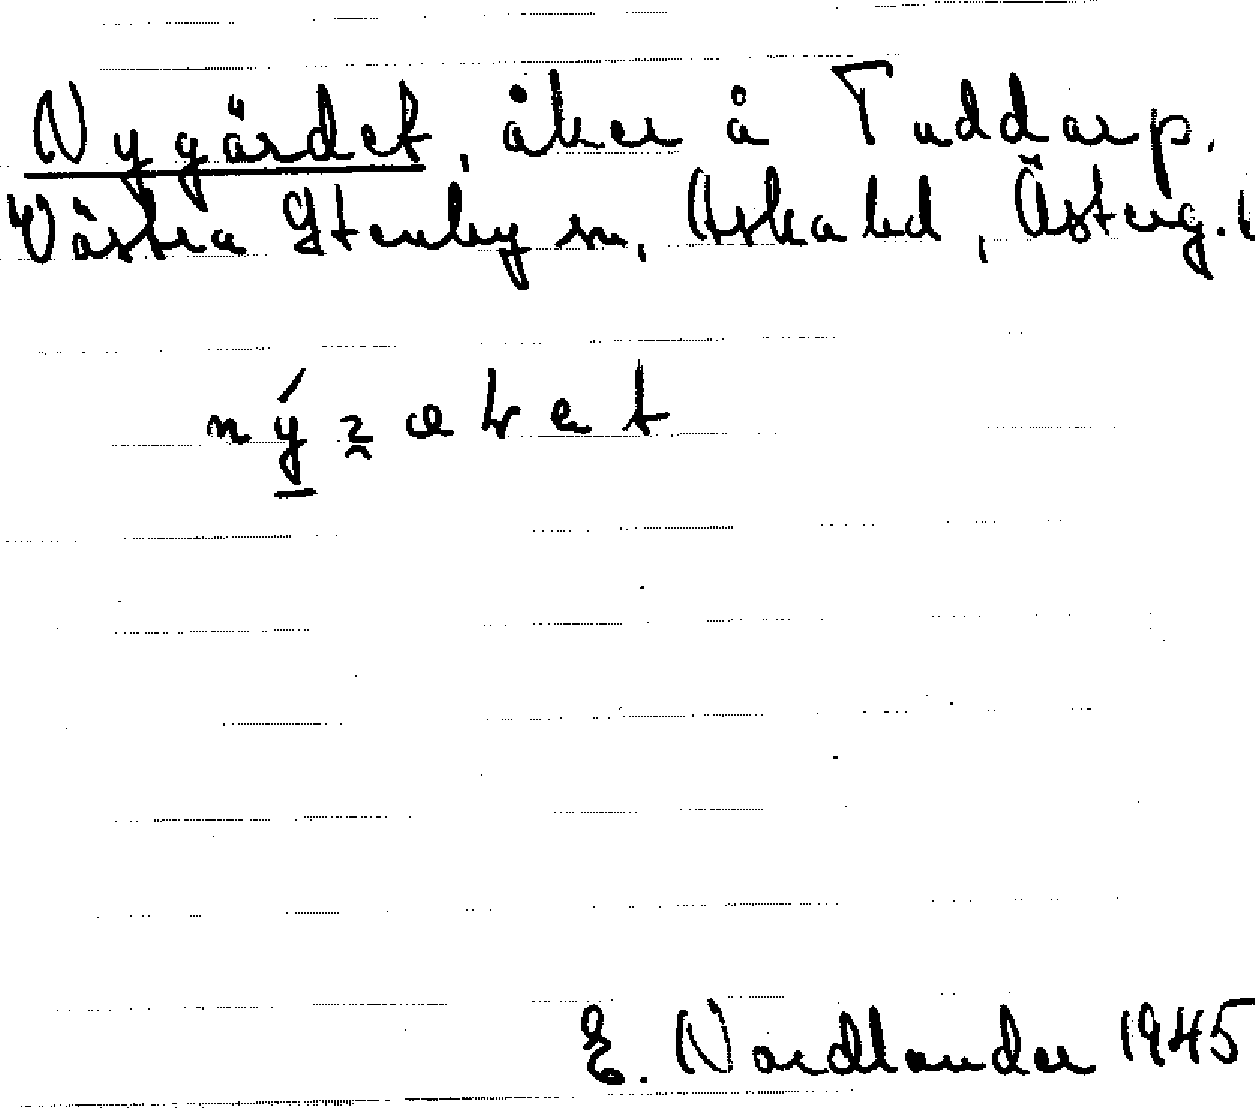 Nygärdet, åker å Tuddarp.
Västra Stenby sn, Aska hd, Österg. l
E. Nordlander 1945